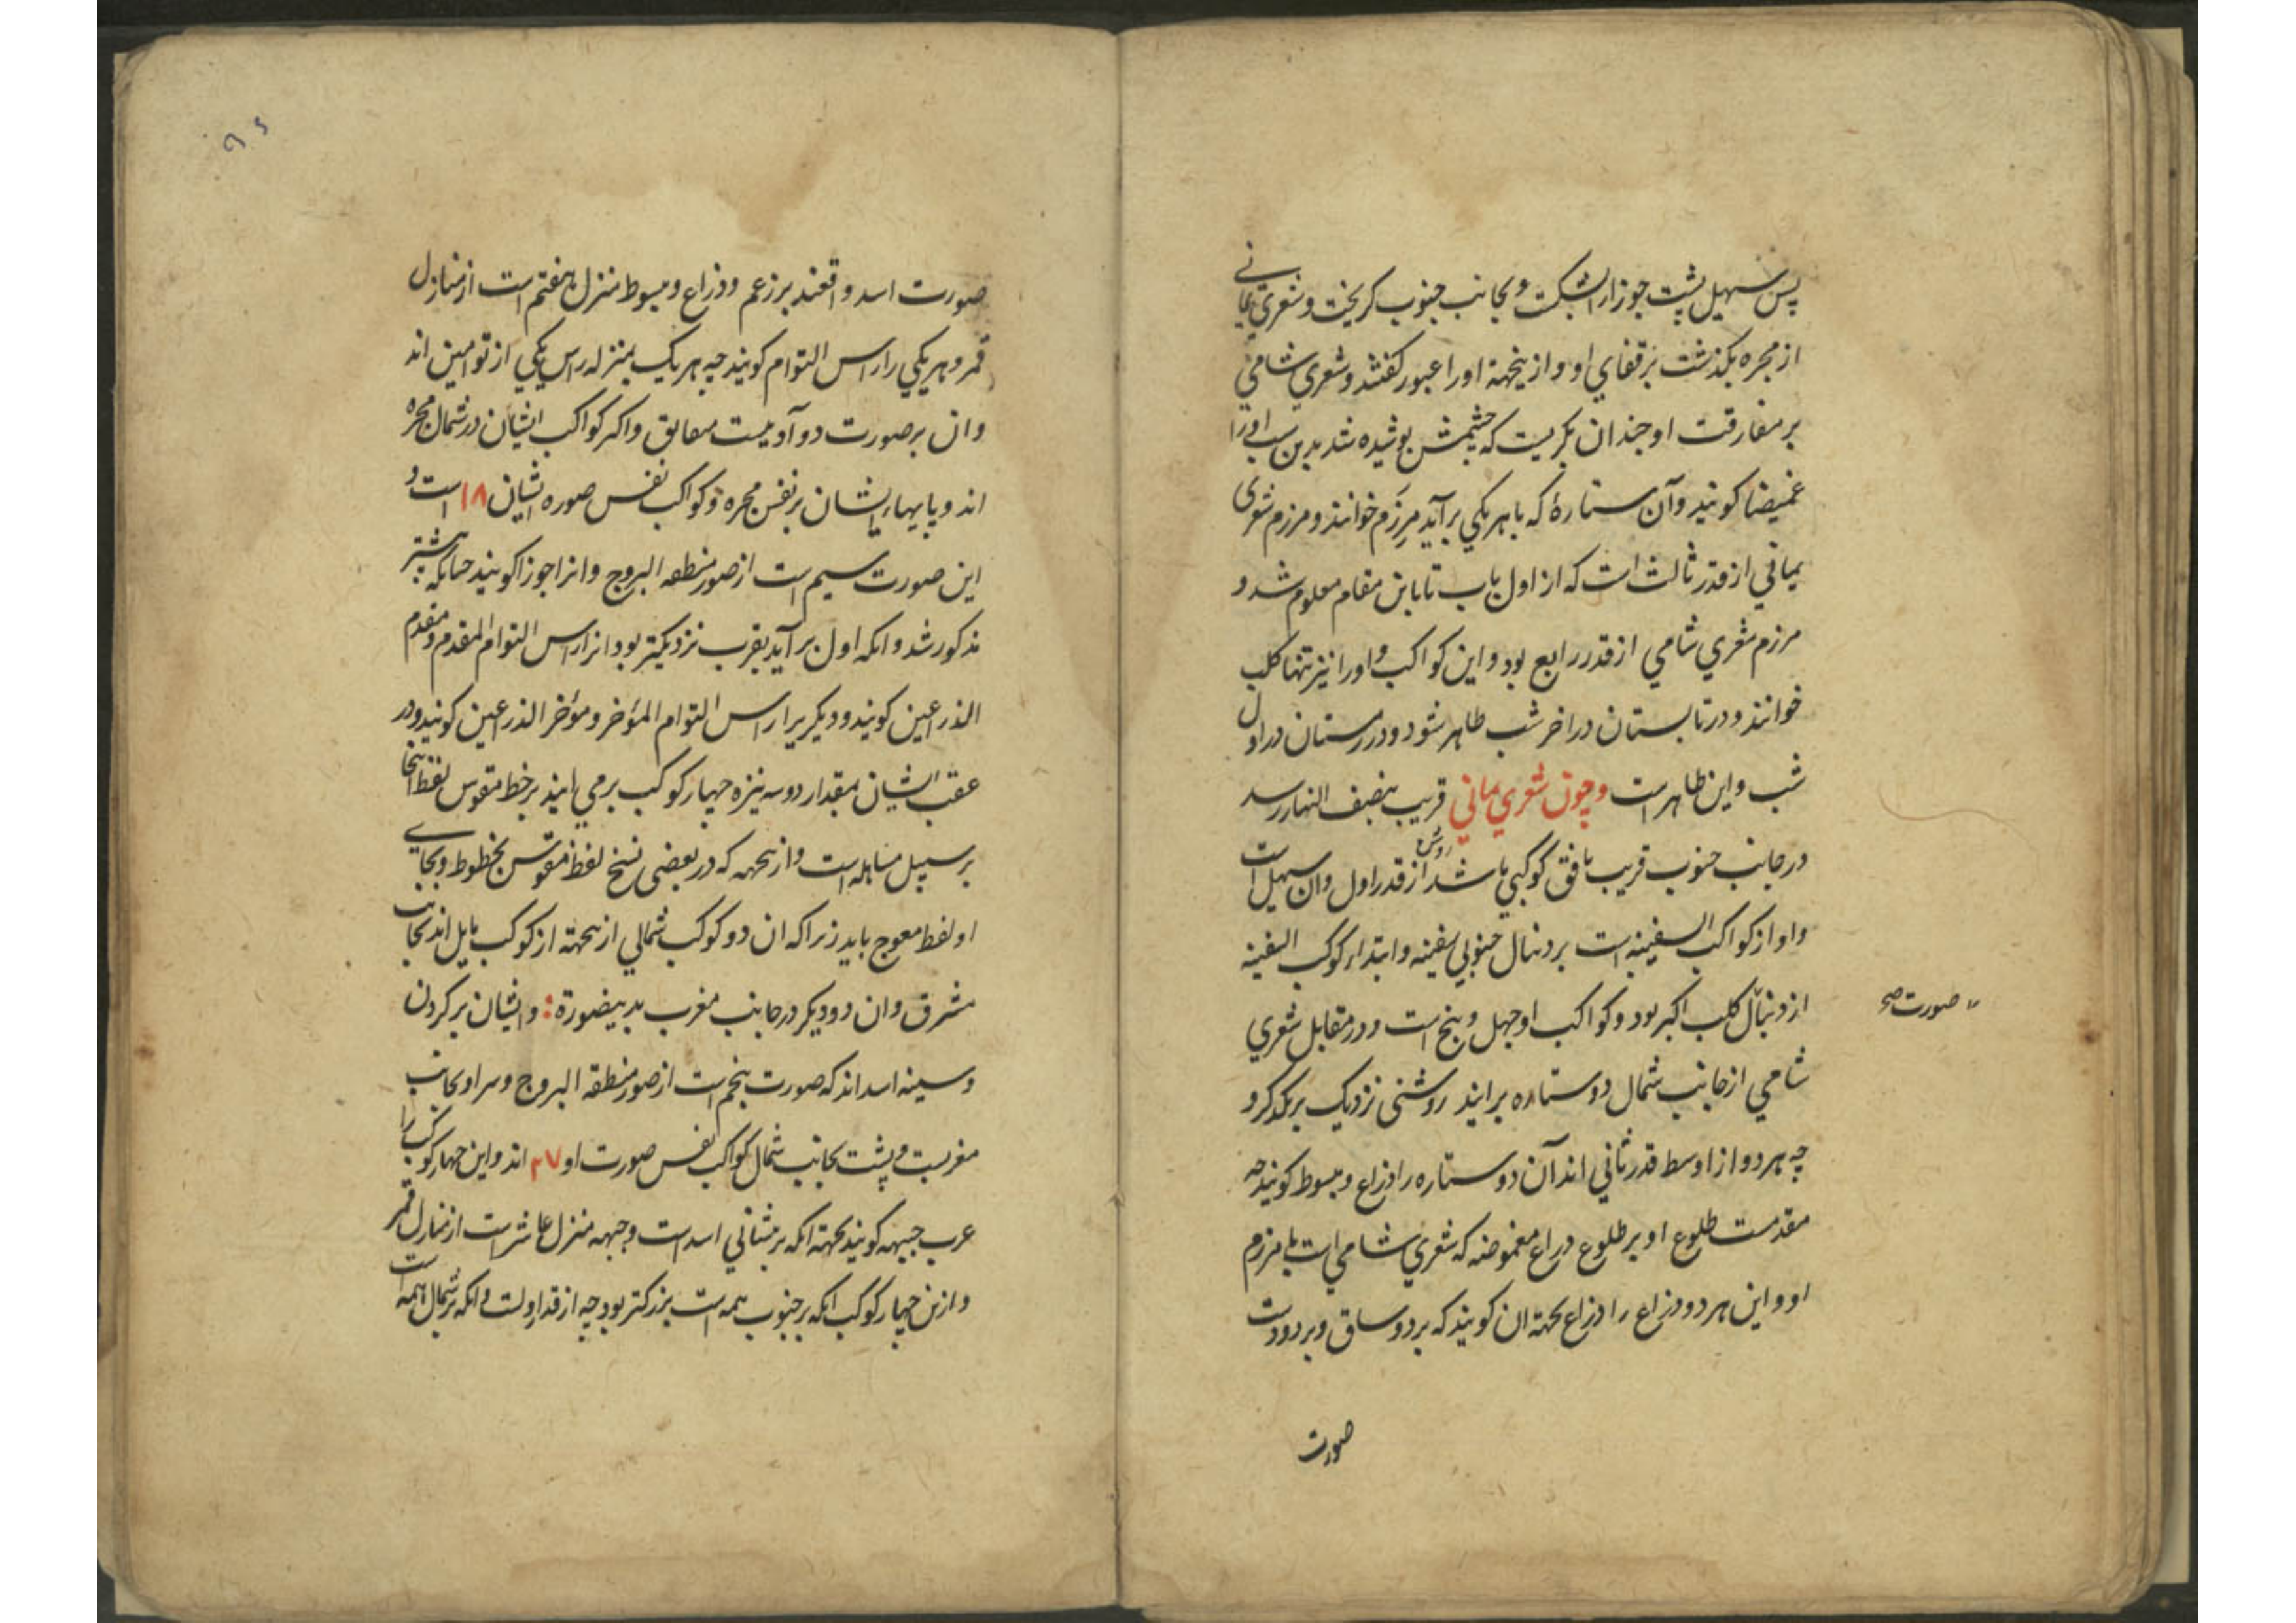 پس سهیل پشت جوزا را بشکست و بجانب جنوب کریخت و شعری یمانی
از مجره بکذشت بر قفای او و ازینجهة او را عبور کفتند و شعری شامی
بر مفارقت او چندان بکریست که چشمش پوشیده شد بدین سبب او را
غمیضا کویند وآن ستارهٔ که با هر یکی برآید مرزم خوانند و مرزم شعری
یمانی از قدر ثالث است که از اول باب تا باین مقام معلوم شد و
مرزم شعری شامی از قدر رابع بود و این کواکب و او را نیز تنها کلب
خوانند و در تابستان در اخر شب ظاهر شود و در زمستان در اول
شب و این ظاهر است وچون شعری یمانی قریب بنصف النهار رسد
در جانب جنوب قریب بافق کوکبی باشد روشن از قدر اول وان سهیل است
واو از کواکب السفینه است بر دنبال جنوبی سفینه وابتداء کوکب السفینه
از دنبال کلب اکبر بود و کواکب او چهل و پنج است و در مقابل شعری
صورت صح
شامی از جانب شمال دو ستاره برایند روشنی نزدیک بریکدکر و
چه هر دو از اوسط قدر ثانی اند آن دو ستاره را ذراع مبسوط کویند چه
مقدمست طلوع او بر طلوع ذراع مغموضه که شعری شامی است با مرزم
او و این هر دو ذراع را ذراع بجهة ان کویند که بر دو ساق و بر دو دست
صورت
صورت اسد واقعند بر زعم و ذراع مبسوط منزل هفتم است از منازل
قمر و هر یکی را راس التوام کویند چه هر یک بمنزله راس یکی از توامین اند
وان بر صورت دو آدمیست معانق واکثر کواکب ایشان در شمال مجره
اند و پایهاء ایشان بر نفس مجره و کواکب نفس صوره ایشان ۱۸ است و
این صورت سیم است از صور منطقه البروج وانرا جوزا کویند چنانکه پیشتر
مذکور شد وانکه اول برآید بقرب نزدیکتر بود انرا راس التوام المقدم و مقدم
الذراعین کویند و دیکریرا راس التوام المؤخر و مؤخر الذراعین کویند و در
عقب ایشان بمقدار دو سه نیزه چهار کوکب برمی ایند بر خط مقوس لفظ اینجا
بر سبیل مساهله است وازینجهه که در بعضی نسخ لفظ مقوس بخطوط و بجای
او لفظ معوج باید زیرا که ان دو کوکب شمالی ازینجهته از کوکب مایل اند بجانب
مشرق وان دو دیکر در جانب مغرب بدینصورة : وایشان بر کردن
و سینه اسد اند که صورت پنجم است از صور منطقه البروج و سر او بجانب
مغربست و پشت بجانب شمال کواکب نفس صورت او ۲۷ اند واین چهار کوکب را
عرب جبهه کویند بجهته انکه بر پیشانی اسد است و جبهه منزل عاشر است از منازل قمر
و ازین چهار کوکب انکه بر جنوب همه است بزرکتر بود چه از قدر اولست و انکه بر شمال همه است